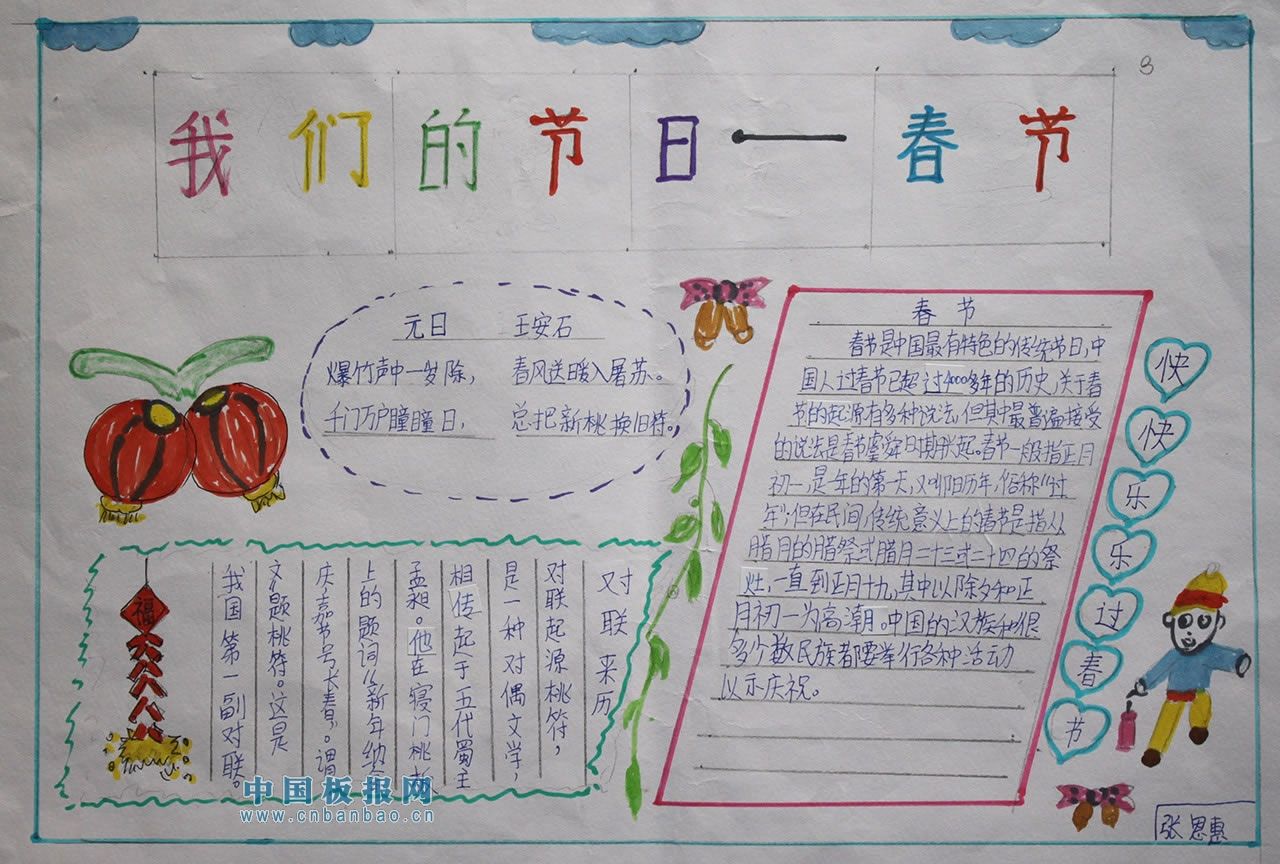 我们的节日——春节
3
元日 王安石
爆竹声中一岁除,春风送暖入屠苏。
千门万户曈曈日,总把新桃换旧符。
春节
春节是中国最有特色的传统节日,中
国人过春节已超过4000多年的历史,关于春
节的起源有多种说法,但其中最普遍接受
的说法是春节虞舜日期兴起。春节一般指正月
初一,是年的第一天,又叫阴历年,俗称"过
年";但在民间,传统意义上的春节是指从
腊月的腊祭或腊月二十三或二十四的祭
灶,一直到正月十九,其中以除夕和正
月初一为高潮。中国的汉族和很
多个数民族都要举行各种活动
以示庆祝。
对联来历
对联起源桃符,
是一种对偶文学,
相传起于五代蜀主
孟昶。他在寝门桃
上的题词"新年纳
庆,嘉节号长春",谓
文题桃符。这是
我国第一副对联。
福
快
快
乐
乐
过
春
节
张恩惠
中国板报网
www.cnbanbao.cn